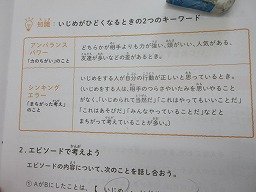 知識：いじめがひどくなるときの2つのキーワード
アンバランス
パワー
「力のちがい」のこと
どちらかが相手よりも力が強い、頭がいい、人気がある、
友達が多いなどの差があるとき。
シンキング
エラー
「まちがった考え」
のこと
いじめをする人が自分の行動が正しいと思っているとき。
（いじめをする人は、相手のつらさやいたみを思いやること
がなく、「いじめられて当然だ」「これはやってもいいことだ」
「これはあそびだ」「みんなやっていることだ」などと
まちがって考えていることが多い。）
2．エピソードで考えよう
エピソードの内容について、次のことを話し合おう。
①AがBにしたことは、